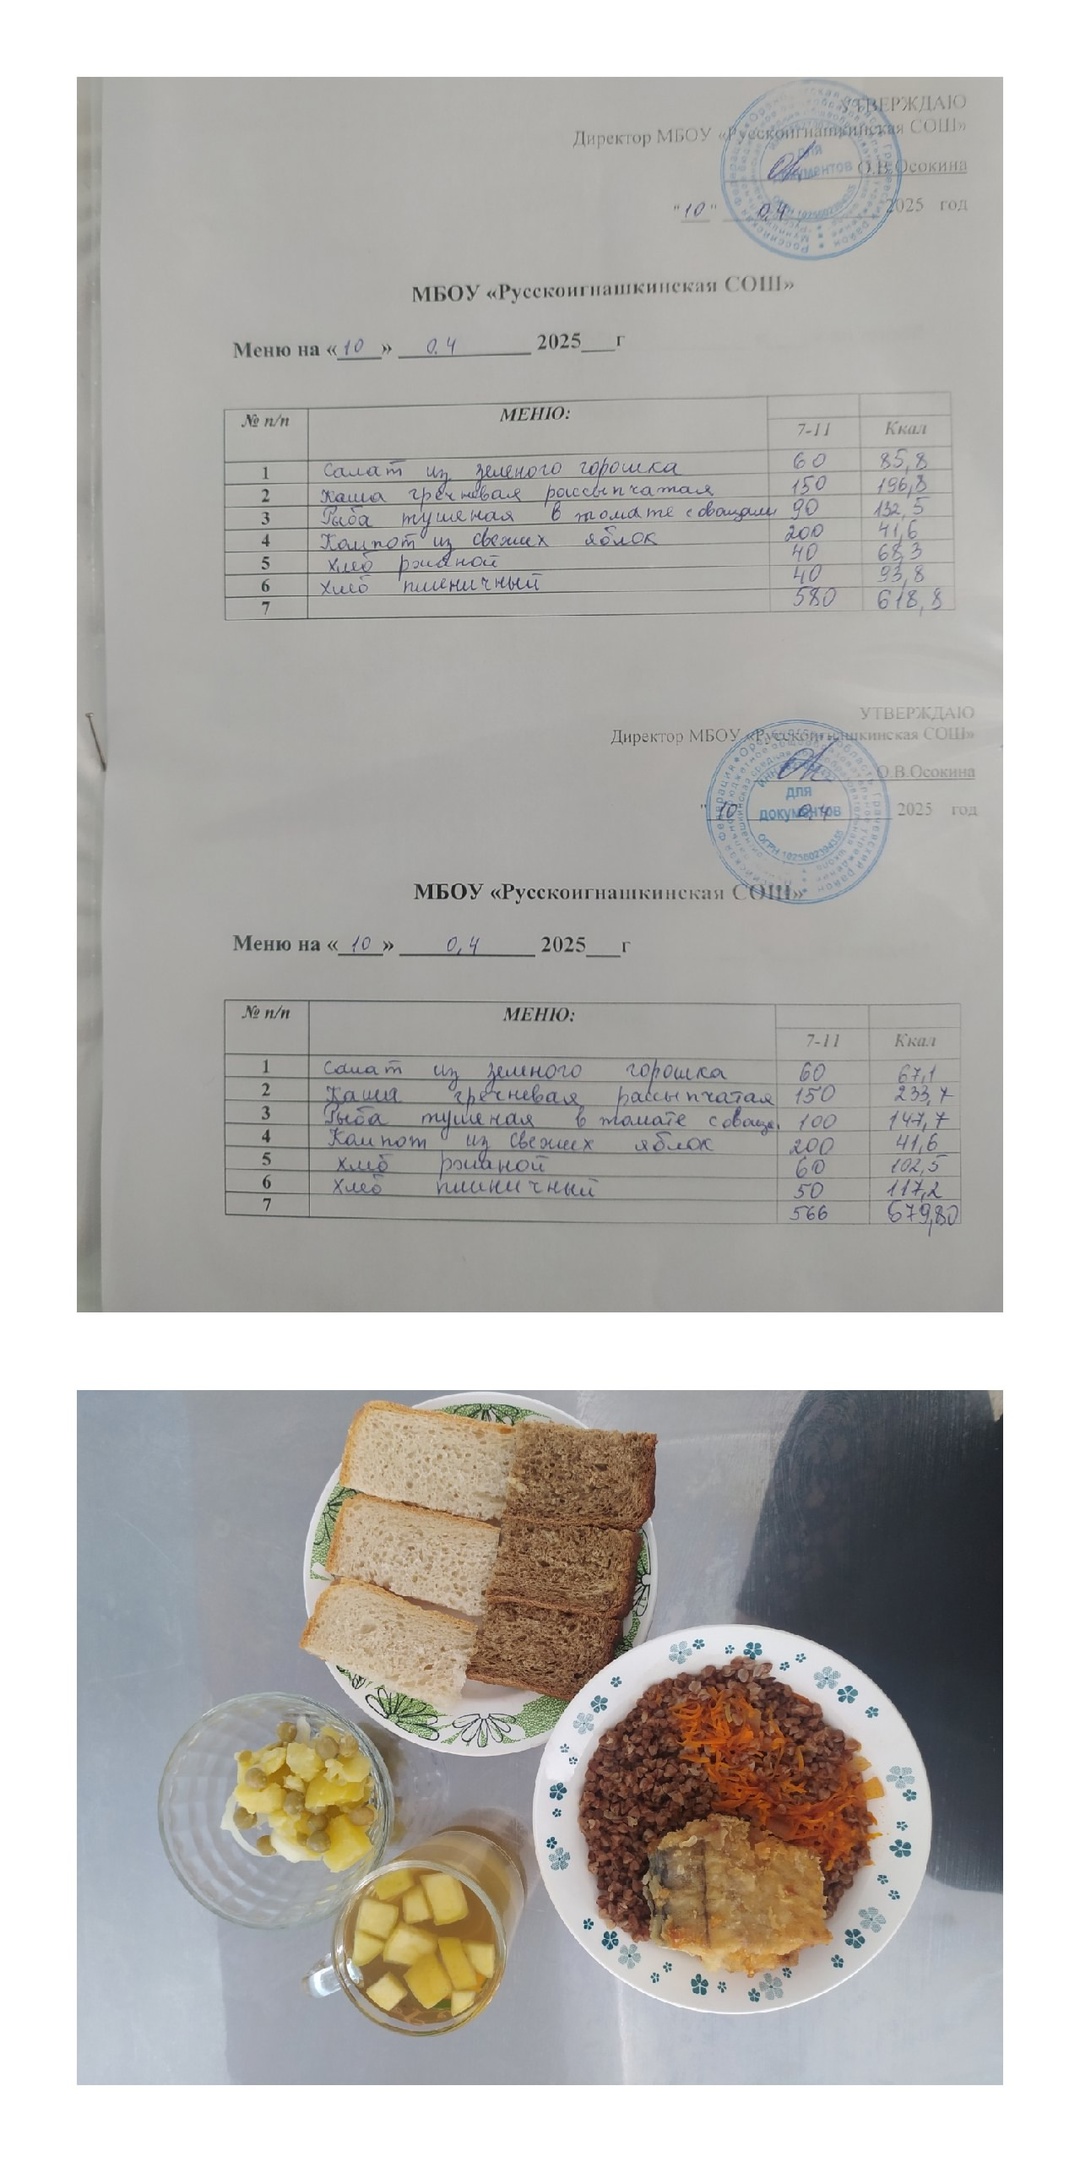 УТВЕРЖДАЮ
Директор МБОУ «Русскоигнашкинская СОШ»
О.В.Осокина
"10" 0,4 2025 год
для документов
МБОУ «Русскоигнашкинская СОШ»
Меню на «10» 0.4 2025 г
№ п/п МЕНЮ: 7-11 Ккал
1 Салат из зеленого горошка 60 85,8
2 Каша гречневая рассыпчатая 150 196,8
3 Рыба тушеная в томате с овощами 90 132,5
4 Компот из свежих яблок 200 41,6
5 хлеб ржаной 40 68,3
6 хлеб пшеничный 40 93,8
7 580 618,8
УТВЕРЖДАЮ
Директор МБОУ «Русскоигнашкинская СОШ»
О.В.Осокина
"10" 0,4 2025 год
для документов
МБОУ «Русскоигнашкинская СОШ»
Меню на «10» 0,4 2025 г
№ п/п МЕНЮ: 7-11 Ккал
1 Салат из зеленого горошка 60 67,1
2 Каша гречневая рассыпчатая 150 233,7
3 Рыба тушеная в томате с овоще. 100 147,7
4 Компот из свежих яблок 200 41,6
5 хлеб ржаной 60 102,5
6 хлеб пшеничный 50 117,2
7 566 679,80